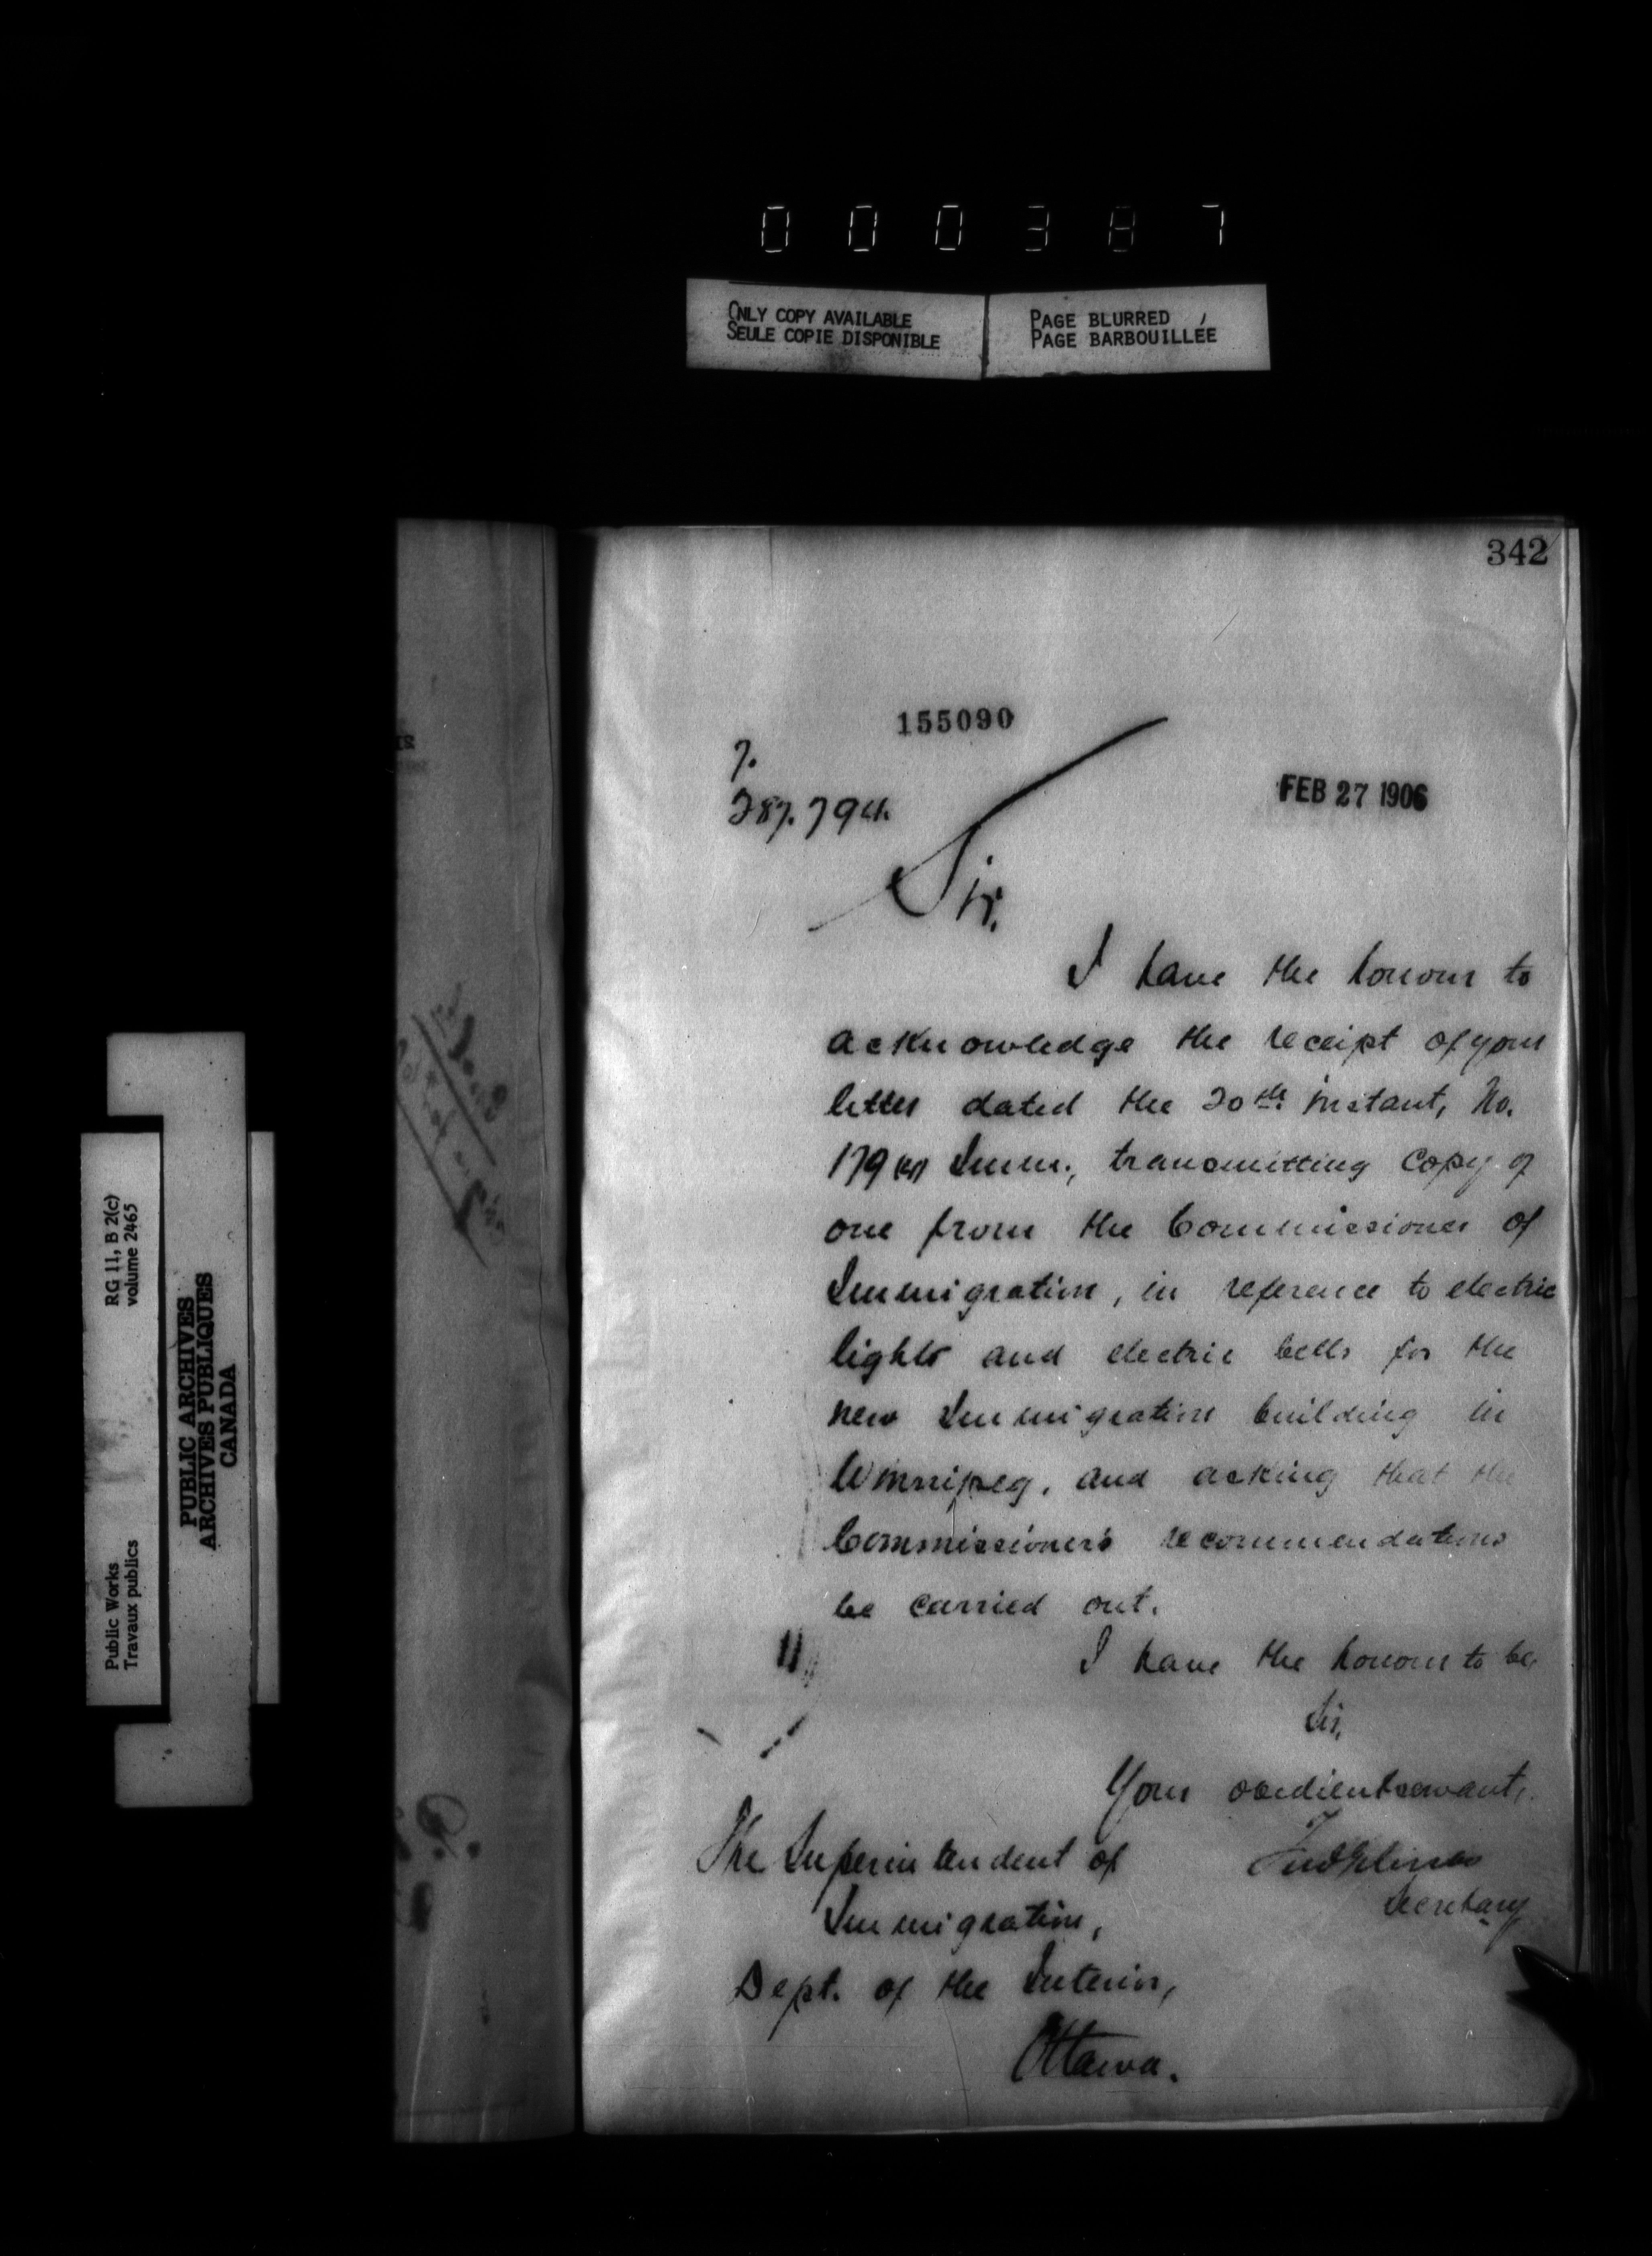 000387
ONLY COPY AVAILABLE
SEULE COPIE DISPONIBLE
PAGE BLURRED
PAGE BARBOUILLÉE
342
155090
7.
287.794.
FEB 27 1906
Sir,
I have the honour to
acknowledge the receipt of your
letter dated the 20th instant, No.
179 Imm., transmitting copy of
one from the Commissioner of
Immigration, in reference to electric
lights and electric bells for the
new Immigration building in
Winnipeg, and asking that the
Commissioner's recommendations
be carried out.
I have the honour to be,
Sir,
Your obedient servant,
Secretary
The Superintendent of
Immigration,
Dept. of the Interior,
Ottawa.
Public Works
Travaux publics
RG 11, B 2(c)
volume 2465
PUBLIC ARCHIVES
ARCHIVES PUBLIQUES
CANADA